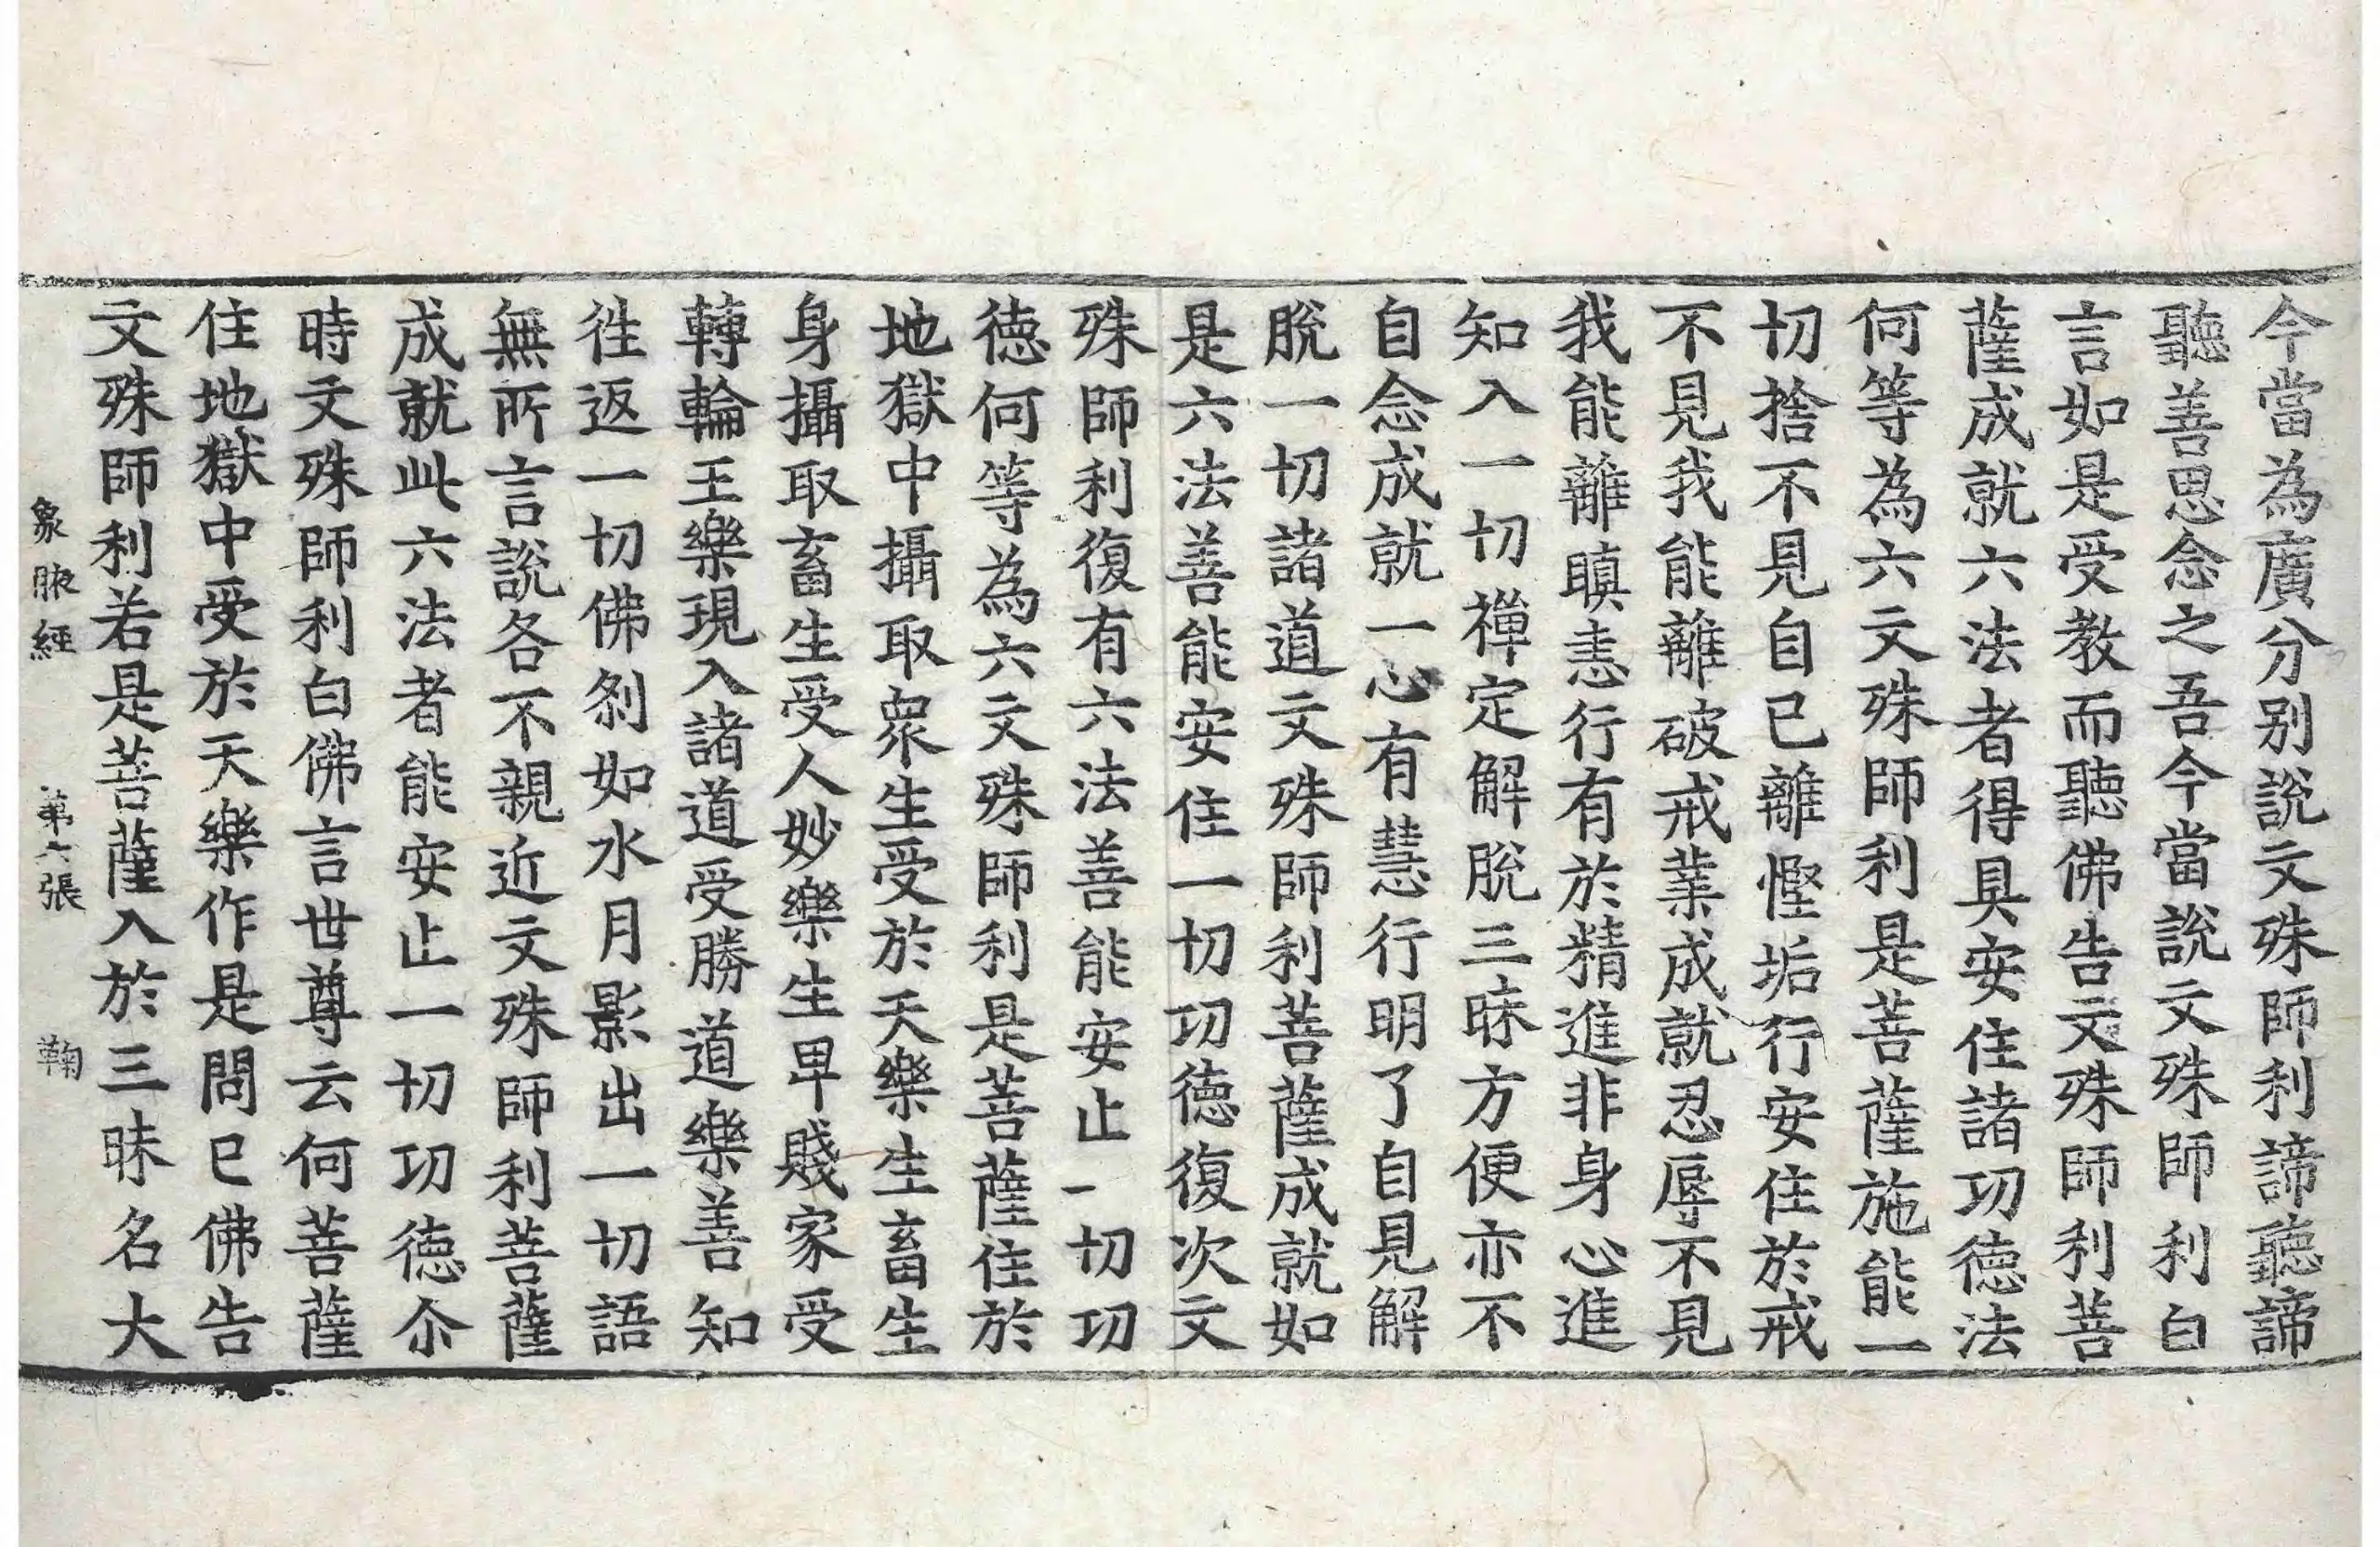 今當為廣分别說文殊師利諦聽諦
聽善思念之吾今當說文殊師利白
言如是受教而聽佛告文殊師利菩
薩成就六法者得具安住諸功徳法
何等為六文殊師利是菩薩施能一
切捨不見自已離慳垢行安住於戒
不見我能離破戒業成就忍辱不見
我能離瞋恚行有於精進非身心進
知入一切禪定解脫三昧方便亦不
自念成就一心有慧行明了自見解
脫一切諸道文殊師利菩薩成就如
是六法善能安住一切功徳復次文
殊師利復有六法善能安止一切功
徳何等為六文殊師利是菩薩住於
地獄中攝取衆生受於天樂生畜生
身攝取畜生受人妙樂生卑賤家受
轉輪王樂現入諸道受勝道樂善知
徃返一切佛刹如水月影出一切語
無所言說各不親近文殊師利菩薩
成就此六法者能安止一切功徳尒
時文殊師利白佛言世尊云何菩薩
住地獄中受於天樂作是問已佛告
文殊師利若是菩薩入於三昧名大
象腋經 第六張 鞠